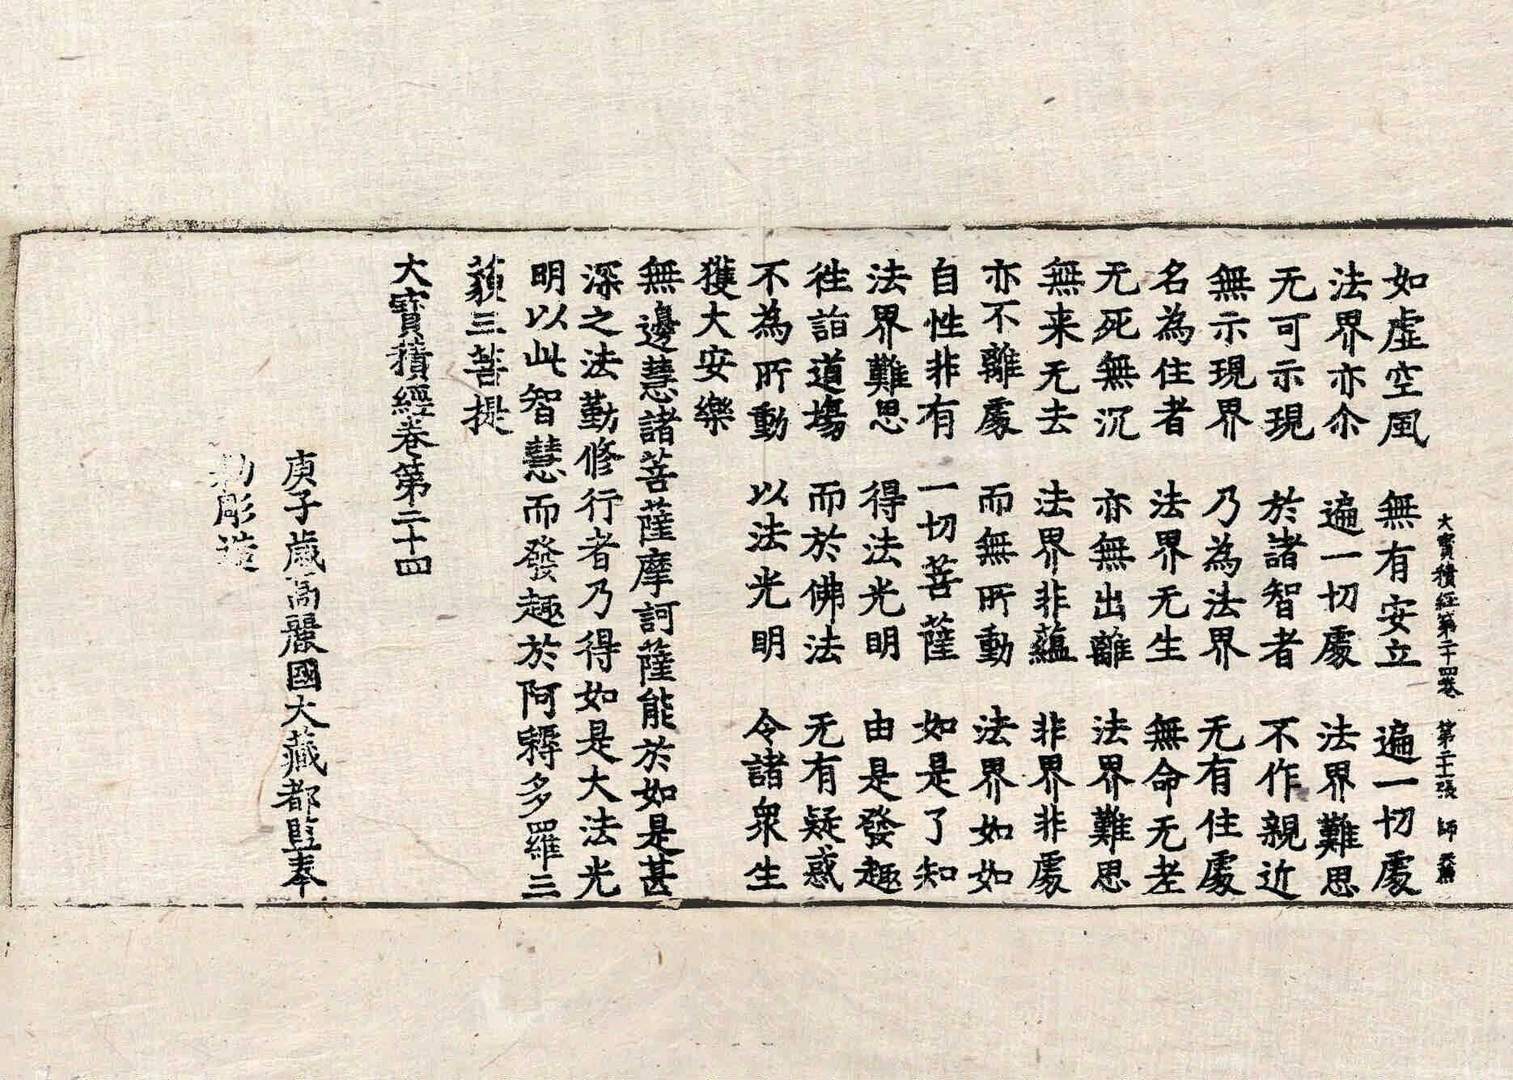 大寶積経第二十四卷 第二十張 師
如虛空風 無有安立 遍一切處
法界亦尒 遍一切處 法界難思
无可示現 於諸智者 不作親近
無示現界 乃為法界 无有住處
名為住者 法界无生 無命无老
无死無沉 亦無出離 法界難思
無来无去 法界非蘊 非界非處
亦不離處 而無所動 法界如如
自性非有 一切菩薩 如是了知
法界難思 得法光明 由是發趣
往詣道場 而於佛法 无有疑惑
不為所動 以法光明 令諸衆生
獲大安樂
無邊慧諸菩薩摩訶薩能於如是甚
深之法勤修行者乃得如是大法光
明以此智慧而發趣於阿耨多羅三
藐三菩提
大寶積經卷第二十四
庚子歲高麗國大藏都監奉
勅彫造